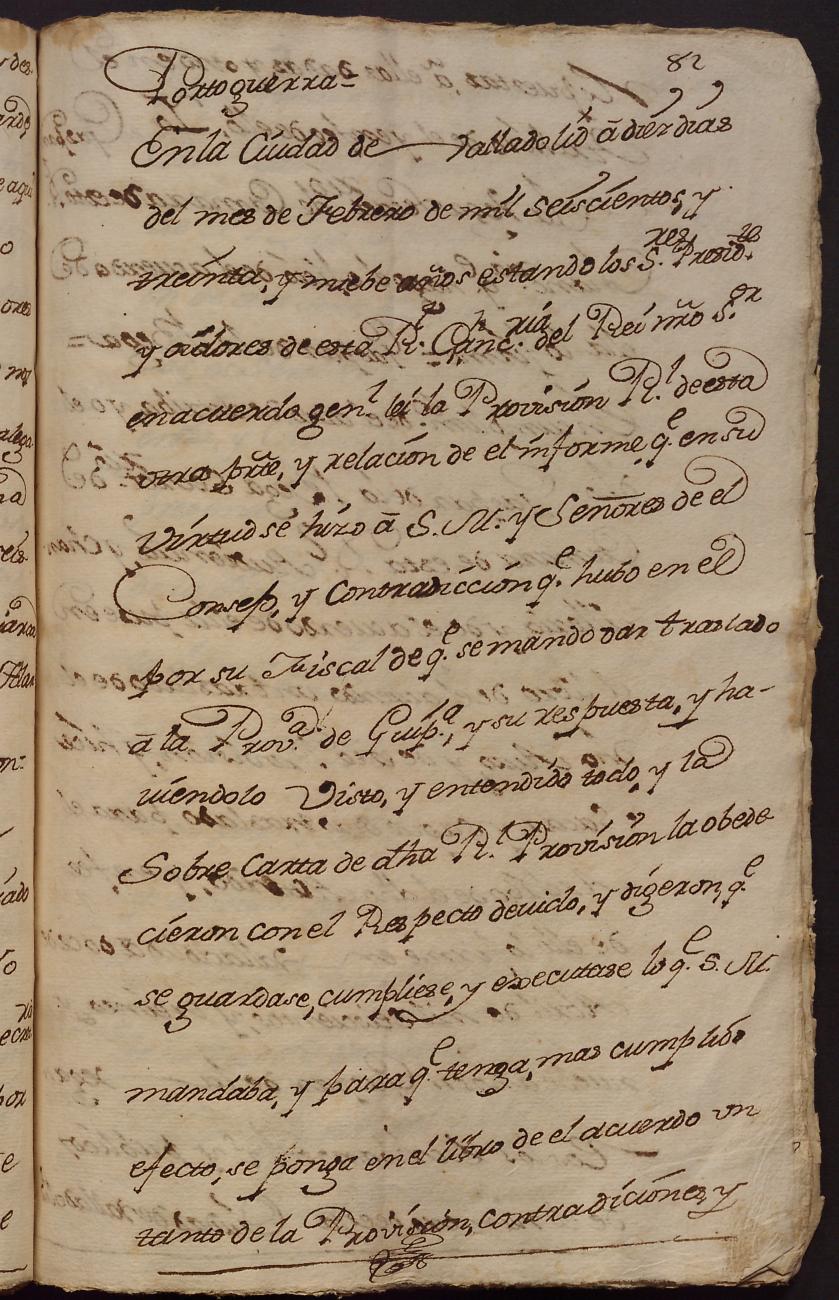 82
Portoguerra=
En la Ciudad de Valladolid à diez dias
del mes de Febrero de mil seiscientos, y
treinta, y nuebe años estando los S.res Presid.te
y oidores de esta R.l Chanc.ria del Rei nr̃o S.or
en acuerdo gen.l lei la Provisión R.l de esta
otra pr̃te, y relación de el informe q.e en su
virtud se hizo à S. M. y Señores de el
Consejo, y Contradicción q.e hubo en el
por su Fiscal de q.e se mando dar traslado
à la Prov.a de Guip.a, y su respuesta, y ha-
uiendolo Visto, y entendido todo, y la
Sobre Carta de dha R.l Provisión la obede
cieron con el Respecto deuido, y digeron, q.e
se guardase, cumpliese, y executase lo q.e S. M.
mandaba, y para q.e tenga, mas cumplido
efecto, se ponga en el libro de el acuerdo un
tanto de la Provisión, contradiciónes, y